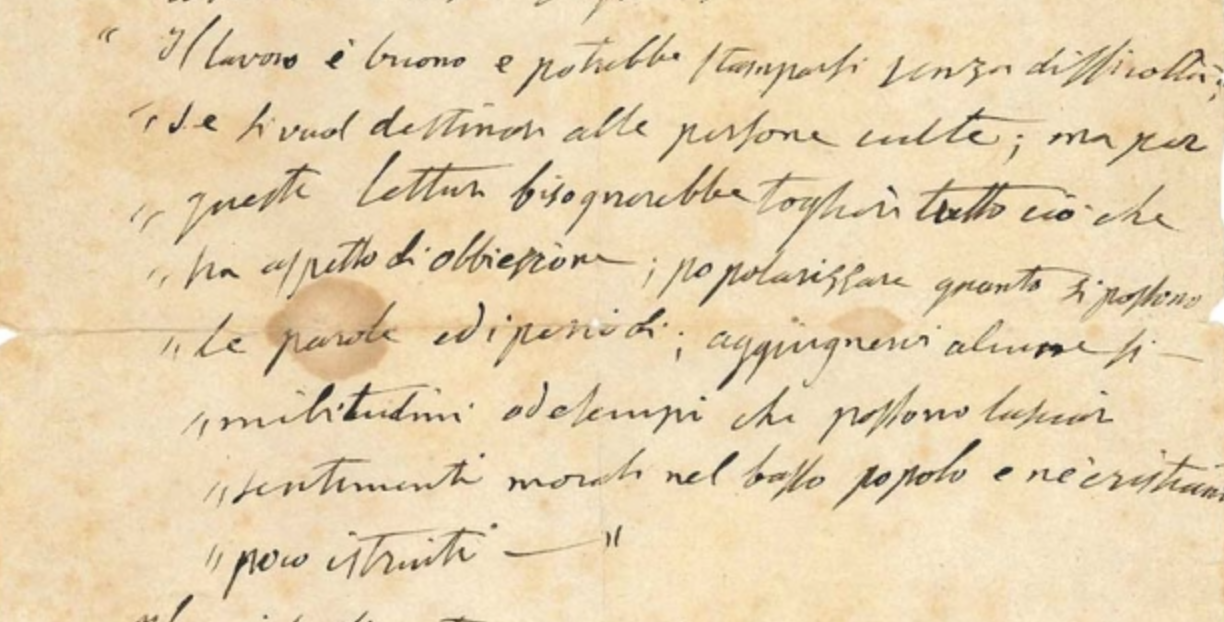 “ Il lavoro è buono e potrebbe stamparsi senza difficoltà;
„ se si vuol destinar alle persone culte; ma per
„ queste letture bisognerebbe togliere tutto ciò che
„ ha aspetto di obbiezione; popolarizzare quanto si possono
„ le parole ed i periodi; aggiugnervi alcune si-
„ militudini od esempi che possono lasciar
„ sentimenti morali nel basso popolo e ne' cristiani
„ poco istruiti — "